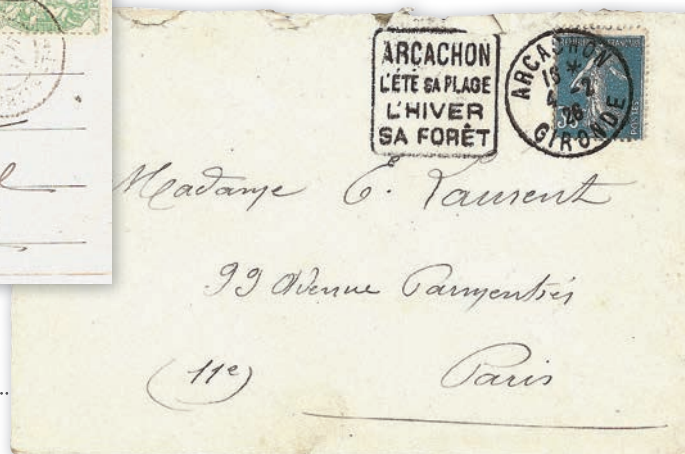 ARCACHON
L'ÉTÉ SA PLAGE
L'HIVER
SA FORÊT
ARCACHON
4 -2
26
GIRONDE
POSTES
Madame E. Laurent
99 Avenue Parmentier
(11e) Paris